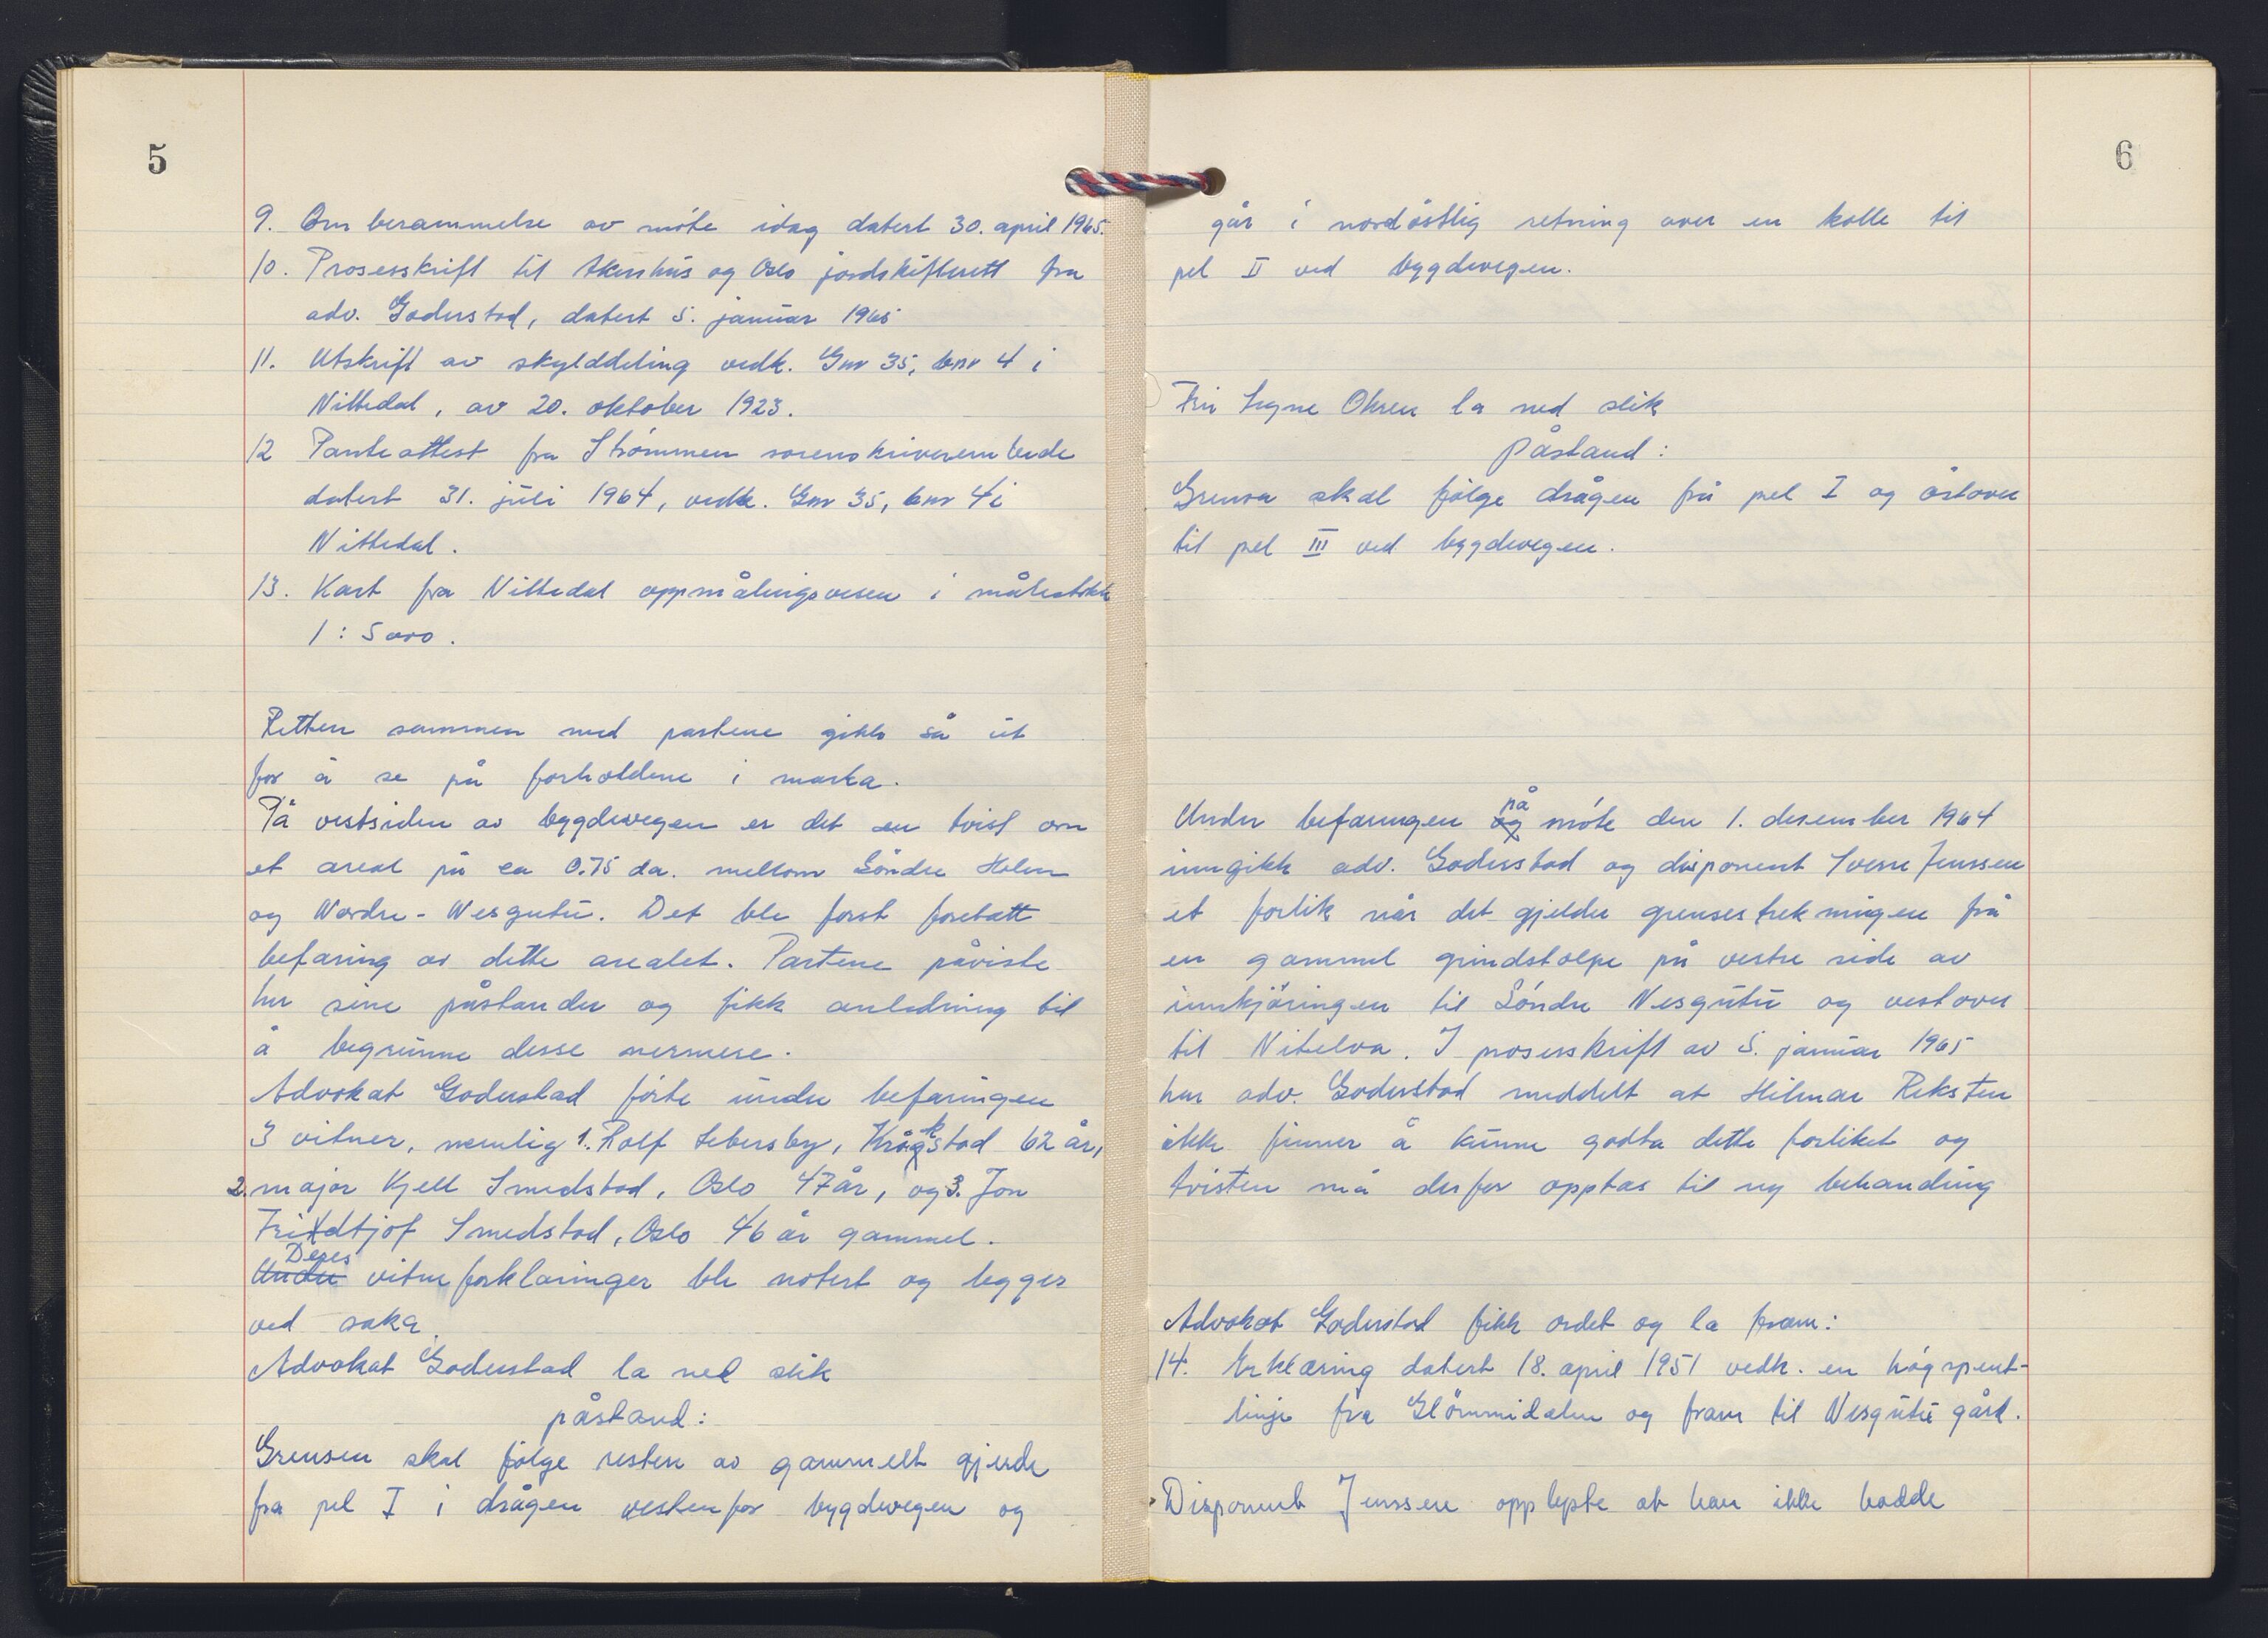 5
9. Om berammelse av möte idag datert 30. april 1965.
10. Prosesskrift til Akershus og Oslo jordskifterett fra
adv. Goderstad, datert 5. januar 1965
11. Utskrift av skylddeling vedk. Gnr 35, bnr 4 i
Nittedal, av 20. oktober 1923.
12 Panteattest fra Strömmen sorenskriverembede
datert 31. juli 1964, vedk. Gnr 35, bnr 4 i
Nittedal.
13. Kart fra Nittedal oppmålingsvesen i målestokk
1:5000.
Retten sammen med partene gikk så ut
for å se på forholdene i marka.
På vestsiden av bygdevegen er det en tvist om
et areal på ca 0.75 da. mellom Söndre Holm
og Nordre-Nesgutu. Det ble först foretatt
befaring av dette arealet. Partene påviste
her sine påstander og fikk anledning til
å begrunne desse nermere.
Advokat Goderstad förte under befaringen
3 vitner, nemlig 1. Rolf Lebersby, Kråkstad 62 år,
2. major Kjell Smedstad, Oslo 47 år, og 3. Jon
Fridtjof Smedstad, Oslo 46 år gammel.
Deres
Under vitneforklaringer ble notert og legges
ved saka.
Advokat Goderstad la ned slik
påstand:
Grensen skal fölge resten av gammelt gjerde
fra pel I i drågen vestenfor bygdevegen og
6
går i nordöstlig retning over en kolle til
pel II ved bygdevegen.
Fru Signe Olsen la ned slik
påstand:
Grensa skal fölge drågen frå pel I og östover
til pel III ved bygdevegen.
på
Under befaringen og möte den 1. desember 1964
inngikk adv. Goderstad og disponent Sverre Jenssen
et forlik når det gjelder grensestrekningen frå
en gammel grindstolpe på vestre side av
innkjöringen til Söndre Nesgutu og vestover
til Nitelva. I prosesskrift av 5. januar 1965
har adv. Goderstad meddelt at Hilmar Reksten
ikke finner å kunne godta dette forliket og
tvisten må derfor opptas til ny behandling
Advokat Goderstad fikk ordet og la fram:
14. Erklæring datert 18. april 1951 vedk. en högspent-
linje fra Glömmidalen og fram til Nesgutu gård.
Disponent Jenssen opplyste at han ikke hadde